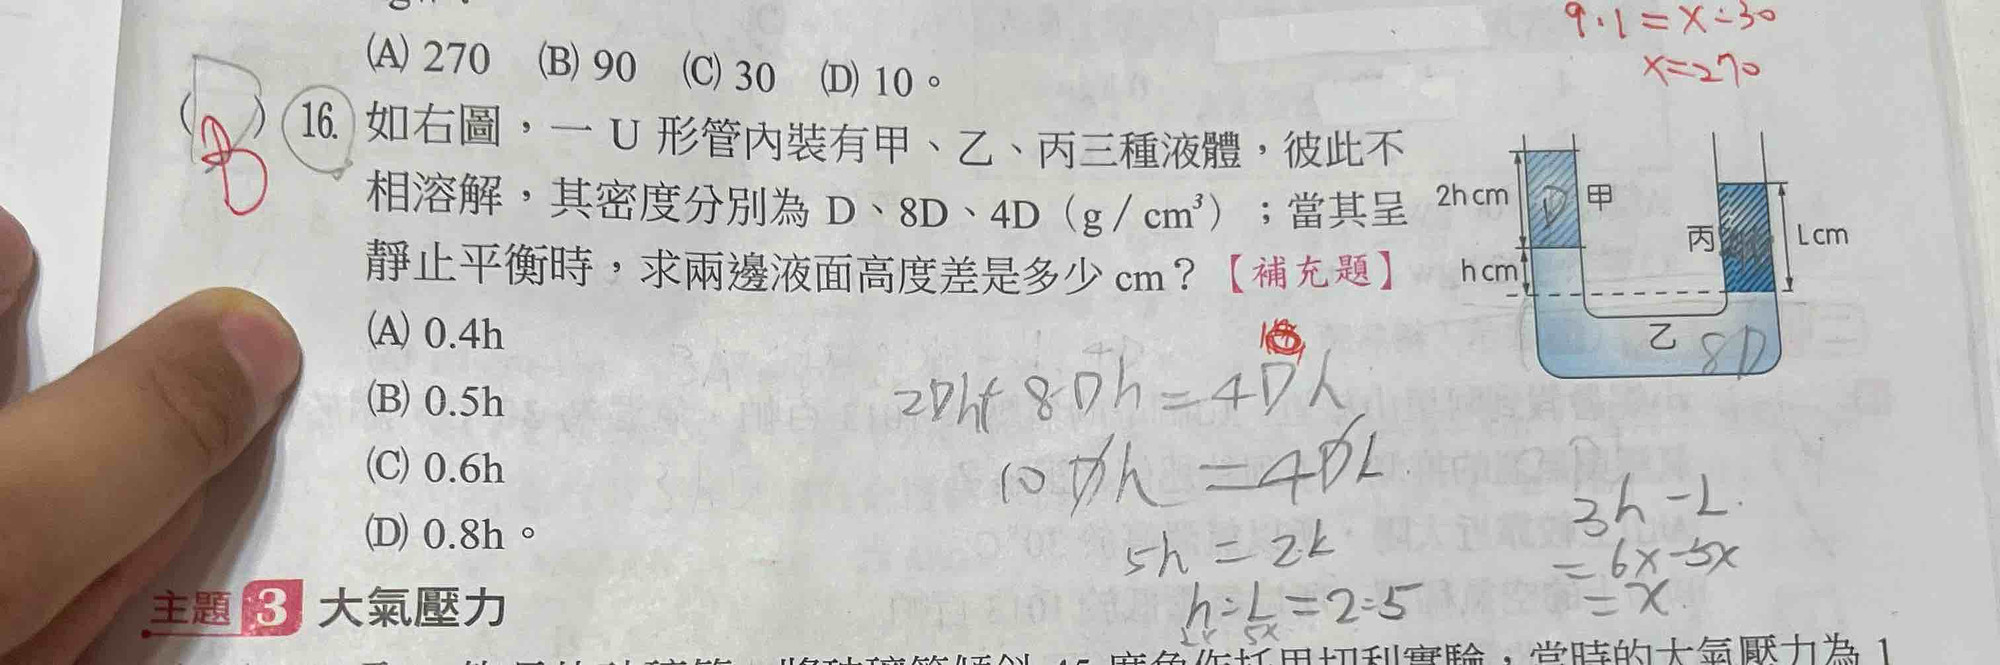 (A) 270 (B) 90 (C) 30 (D) 10。
9.1=x-30
x=270
( B ) 16. 如右圖，一 U 形管內裝有甲、乙、丙三種液體，彼此不
相溶解，其密度分別為 D、8D、4D（g／cm³）；當其呈
靜止平衡時，求兩邊液面高度差是多少 cm？【補充題】
(A) 0.4h
(B) 0.5h
(C) 0.6h
(D) 0.8h。
2h cm
D
甲
丙
L cm
h cm
乙
8D
2Dh+8Dh=4Dh
10Dh=4DL
5h=2L
h:L=2:5
2x 5x
3h-L
=6x-5x
=x
主題 3 大氣壓力